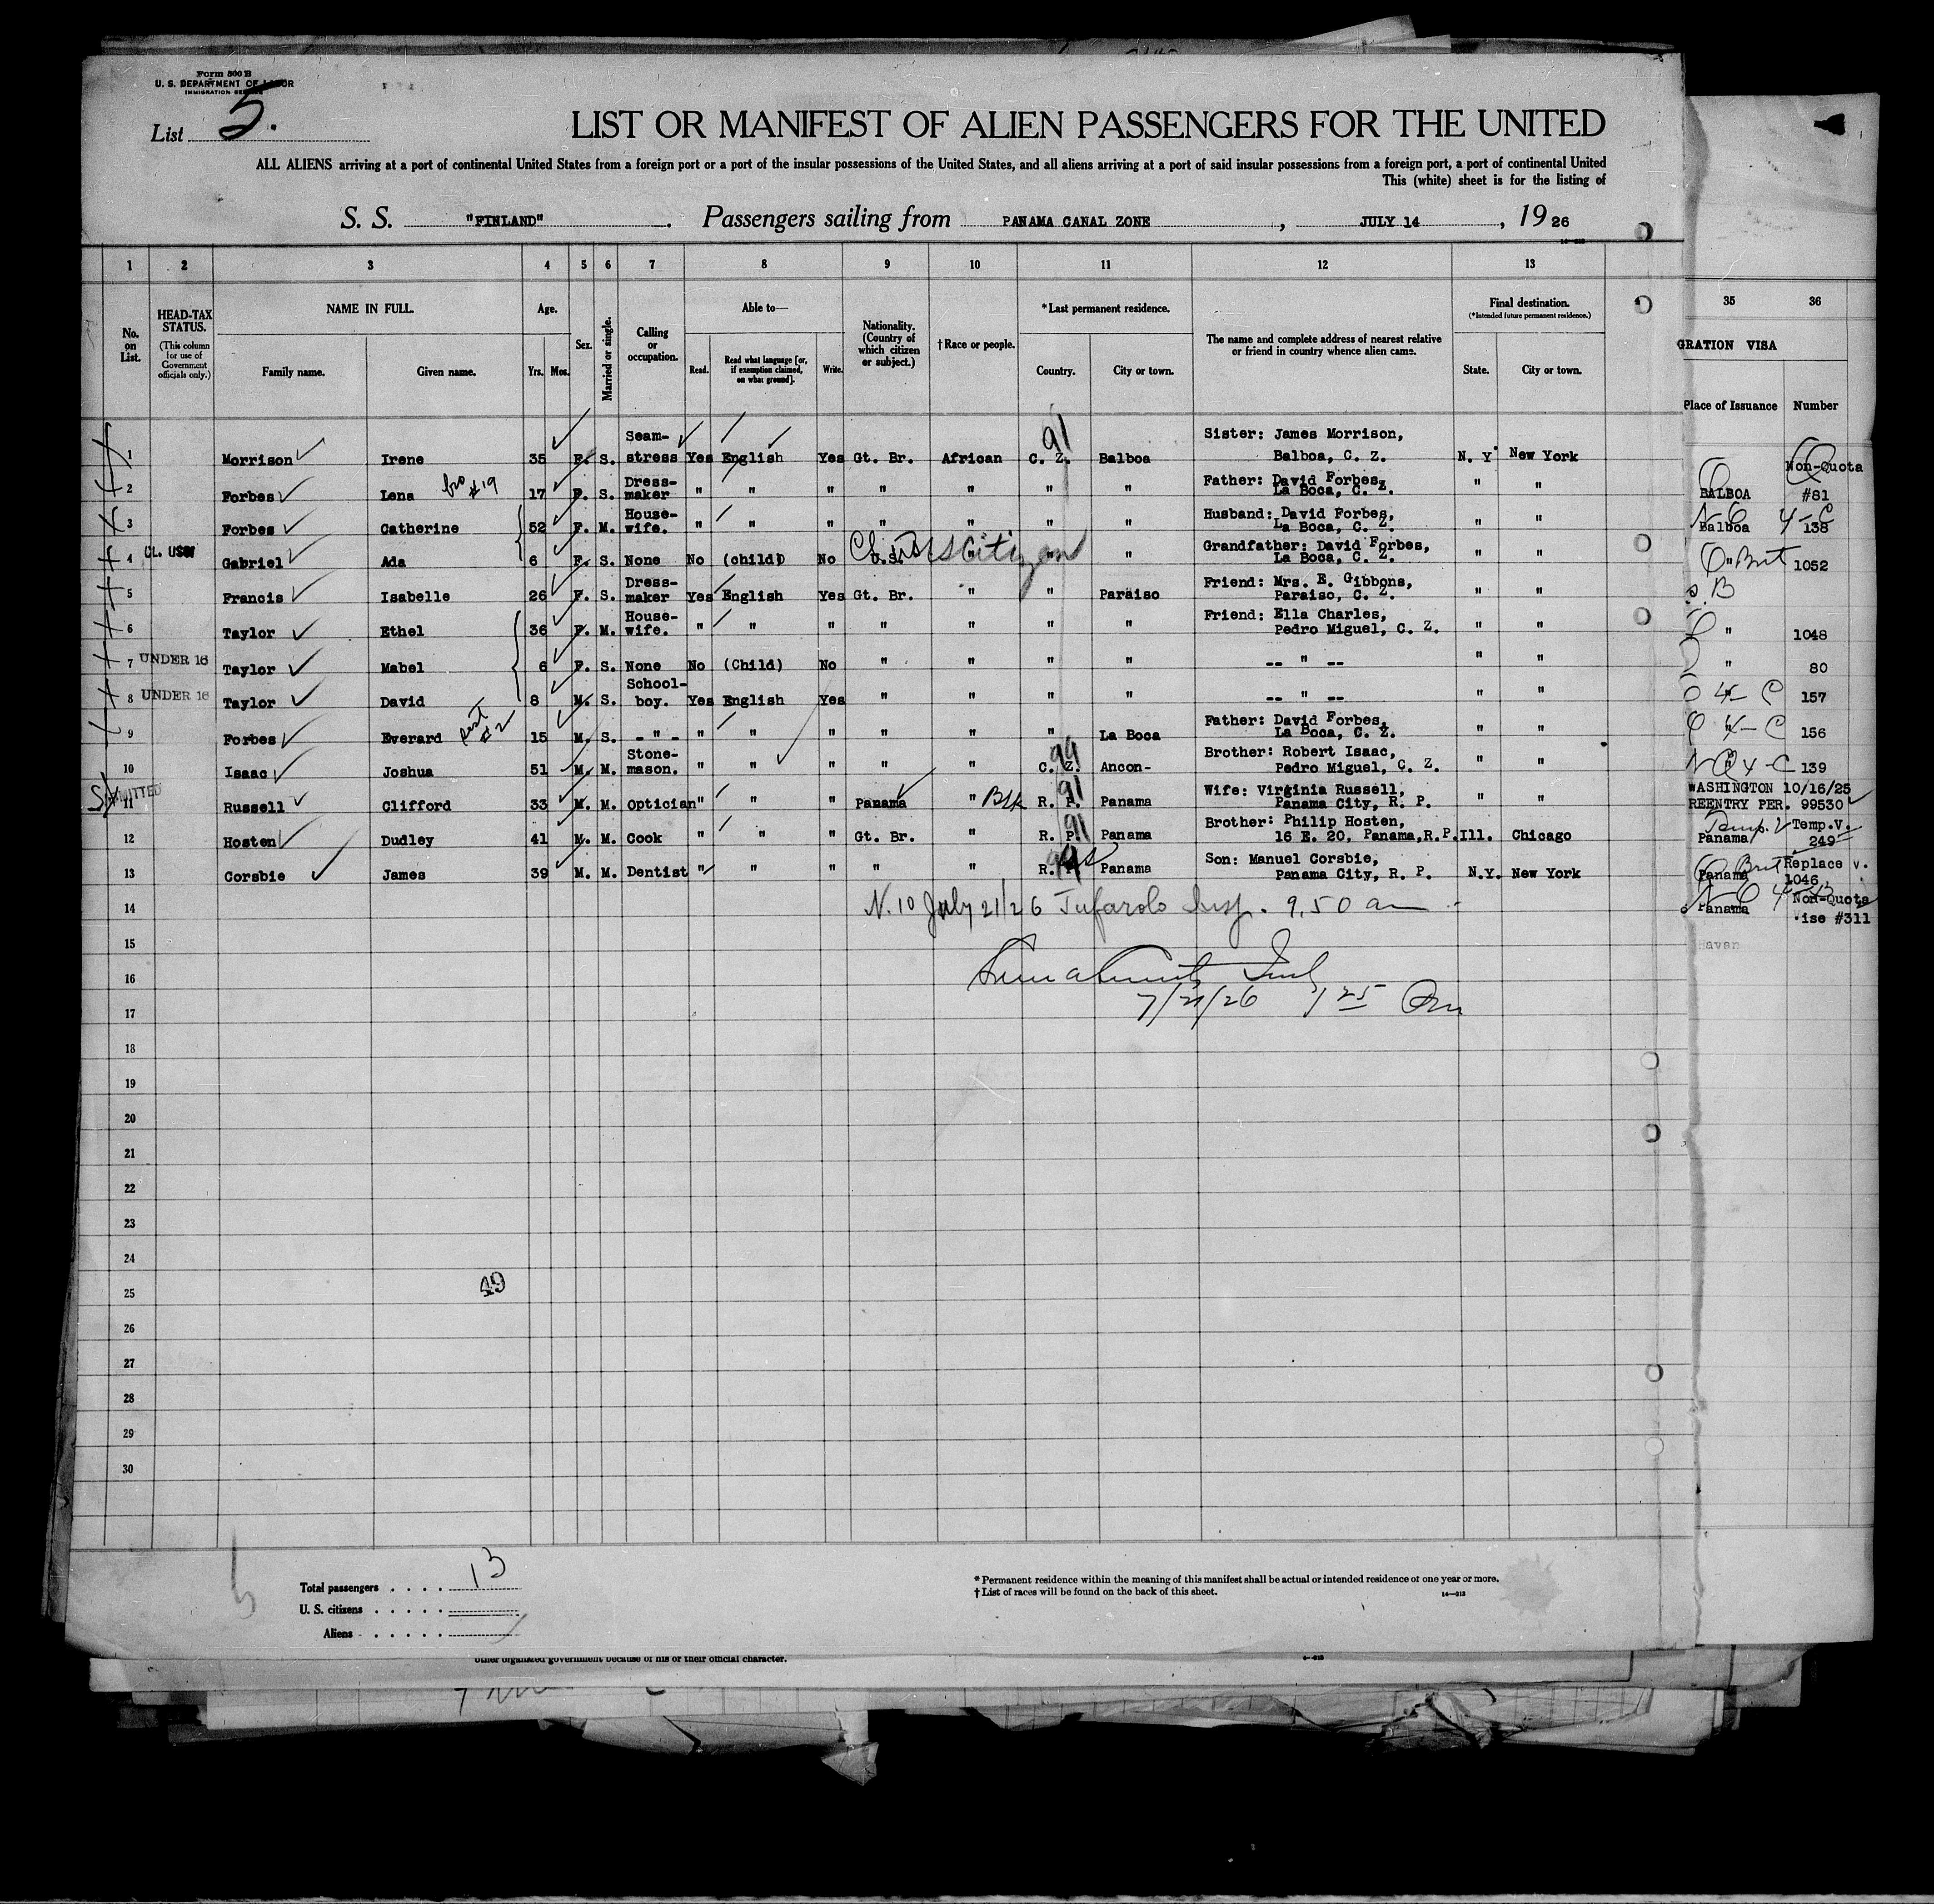 Form 500 B
U. S. DEPARTMENT OF LABOR
IMMIGRATION SERVICE
List 5.
LIST OR MANIFEST OF ALIEN PASSENGERS FOR THE UNITED
ALL ALIENS arriving at a port of continental United States from a foreign port or a port of the insular possessions of the United States, and all aliens arriving at a port of said insular possessions from a foreign port, a port of continental United
This (white) sheet is for the listing of
S. S. "FINLAND" . Passengers sailing from PANAMA CANAL ZONE , JULY 14 , 19 26
1 2 3 4 5 6 7 8 9 10 11 12 13 35 36
No. on List.
HEAD-TAX STATUS.
(This column for use of Government officials only.)
NAME IN FULL.
Family name. Given name.
Age.
Yrs. Mos.
Sex.
Married or single.
Calling or occupation.
Able to—
Read. Read what language [or, if exemption claimed, on what ground]. Write.
Nationality. (Country of which citizen or subject.)
†Race or people.
*Last permanent residence.
Country. City or town.
The name and complete address of nearest relative or friend in country whence alien came.
Final destination.
(*Intended future permanent residence.)
State. City or town.
GRATION VISA
Place of Issuance Number
91
1 Morrison Irene 35 F. S. Seam-stress Yes English Yes Gt. Br. African C. Z. Balboa Sister: James Morrison, Balboa, C. Z. N. Y New York Non-Quota
2 Forbes Lena bro #19 17 F. S. Dress-maker " " " " " " " Father: David Forbes, La Boca, C. Z. " " BALBOA #81
3 Forbes Catherine 52 F. M. House-wife. " " " " " " " Husband: David Forbes, La Boca, C. Z. " " Balboa 138
4 CL. USC Gabriel Ada 6 F. S. None No (child) No U.S. US Citizen " " Grandfather: David Forbes, La Boca, C. Z. " " " 1052
5 Francis Isabelle 26 F. S. Dress-maker Yes English Yes Gt. Br. " " Paraiso Friend: Mrs. E. Gibbons, Paraiso, C. Z. " "
6 Taylor Ethel 36 F. M. House-wife. " " " " " " " Friend: Ella Charles, Pedro Miguel, C. Z. " " " 1048
7 UNDER 16 Taylor Mabel 6 F. S. None No (Child) No " " " " -- " -- " " " 80
8 UNDER 16 Taylor David 8 M. S. School-boy. Yes English Yes " " " " -- " -- " " 4-C 157
9 Forbes Everard #2 15 M. S. - " - " " " " " " La Boca Father: David Forbes, La Boca, C. Z. " " 4-C 156
10 Isaac Joshua 51 M. M. Stone-mason. " " " " " C. Z. Ancon- Brother: Robert Isaac, Pedro Miguel, C. Z. " " 139
ADMITTED
11 Russell Clifford 33 M. M. Optician " " " Panama " Blk R. P. Panama Wife: Virginia Russell, Panama City, R. P. " " WASHINGTON 10/16/25 REENTRY PER. 99530
12 Hosten Dudley 41 M. M. Cook " " " Gt. Br. " R. P. Panama Brother: Philip Hosten, 16 E. 20, Panama,R.P. Ill. Chicago Panama Temp.V. 249
13 Corsbie James 39 M. M. Dentist " " " " " R. P. Panama Son: Manuel Corsbie, Panama City, R. P. N.Y. New York Panama Replace v. 1046
14 N. 10 July 21/26 Insp. 9.50 am Panama Non-Quota Vise #311
15 Havan
16
7/21/26
17
18
19
20
21
22
23
24
49
25
26
27
28
29
30
Total passengers . . . . 13
U. S. citizens . . . . .
Aliens . . . . . .
* Permanent residence within the meaning of this manifest shall be actual or intended residence of one year or more.
† List of races will be found on the back of this sheet.
other organized government because of his or their official character.